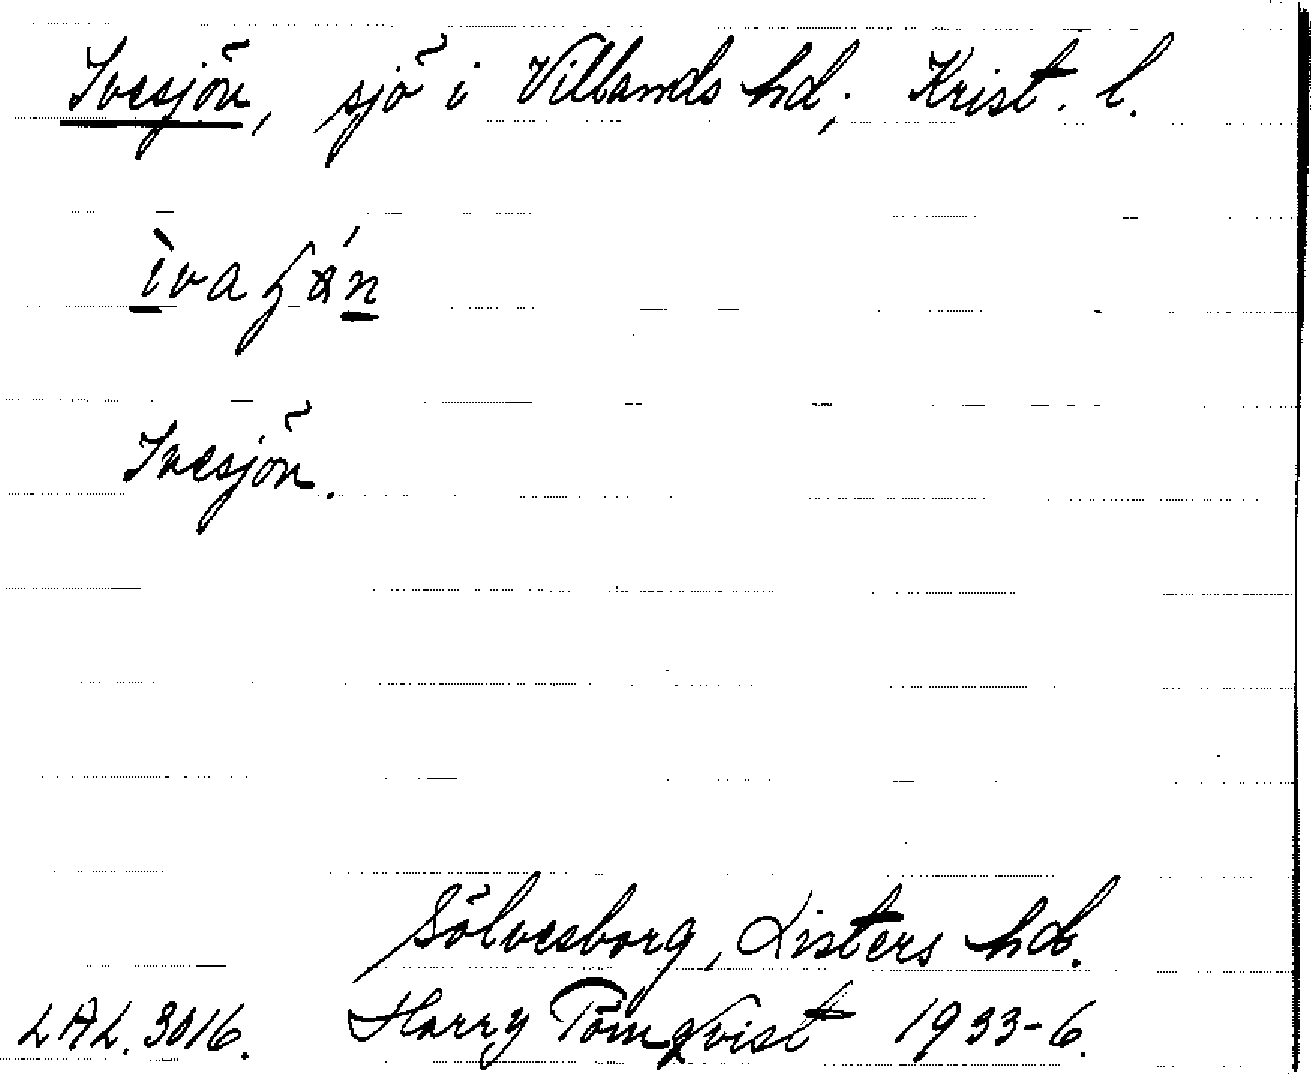 Ivesjön, sjö i Villands hd; Krist. l.
Ivesjön.
Sölvesborg, Listers hd.
LAL. 3016. Harry Törnqvist 1933-6.